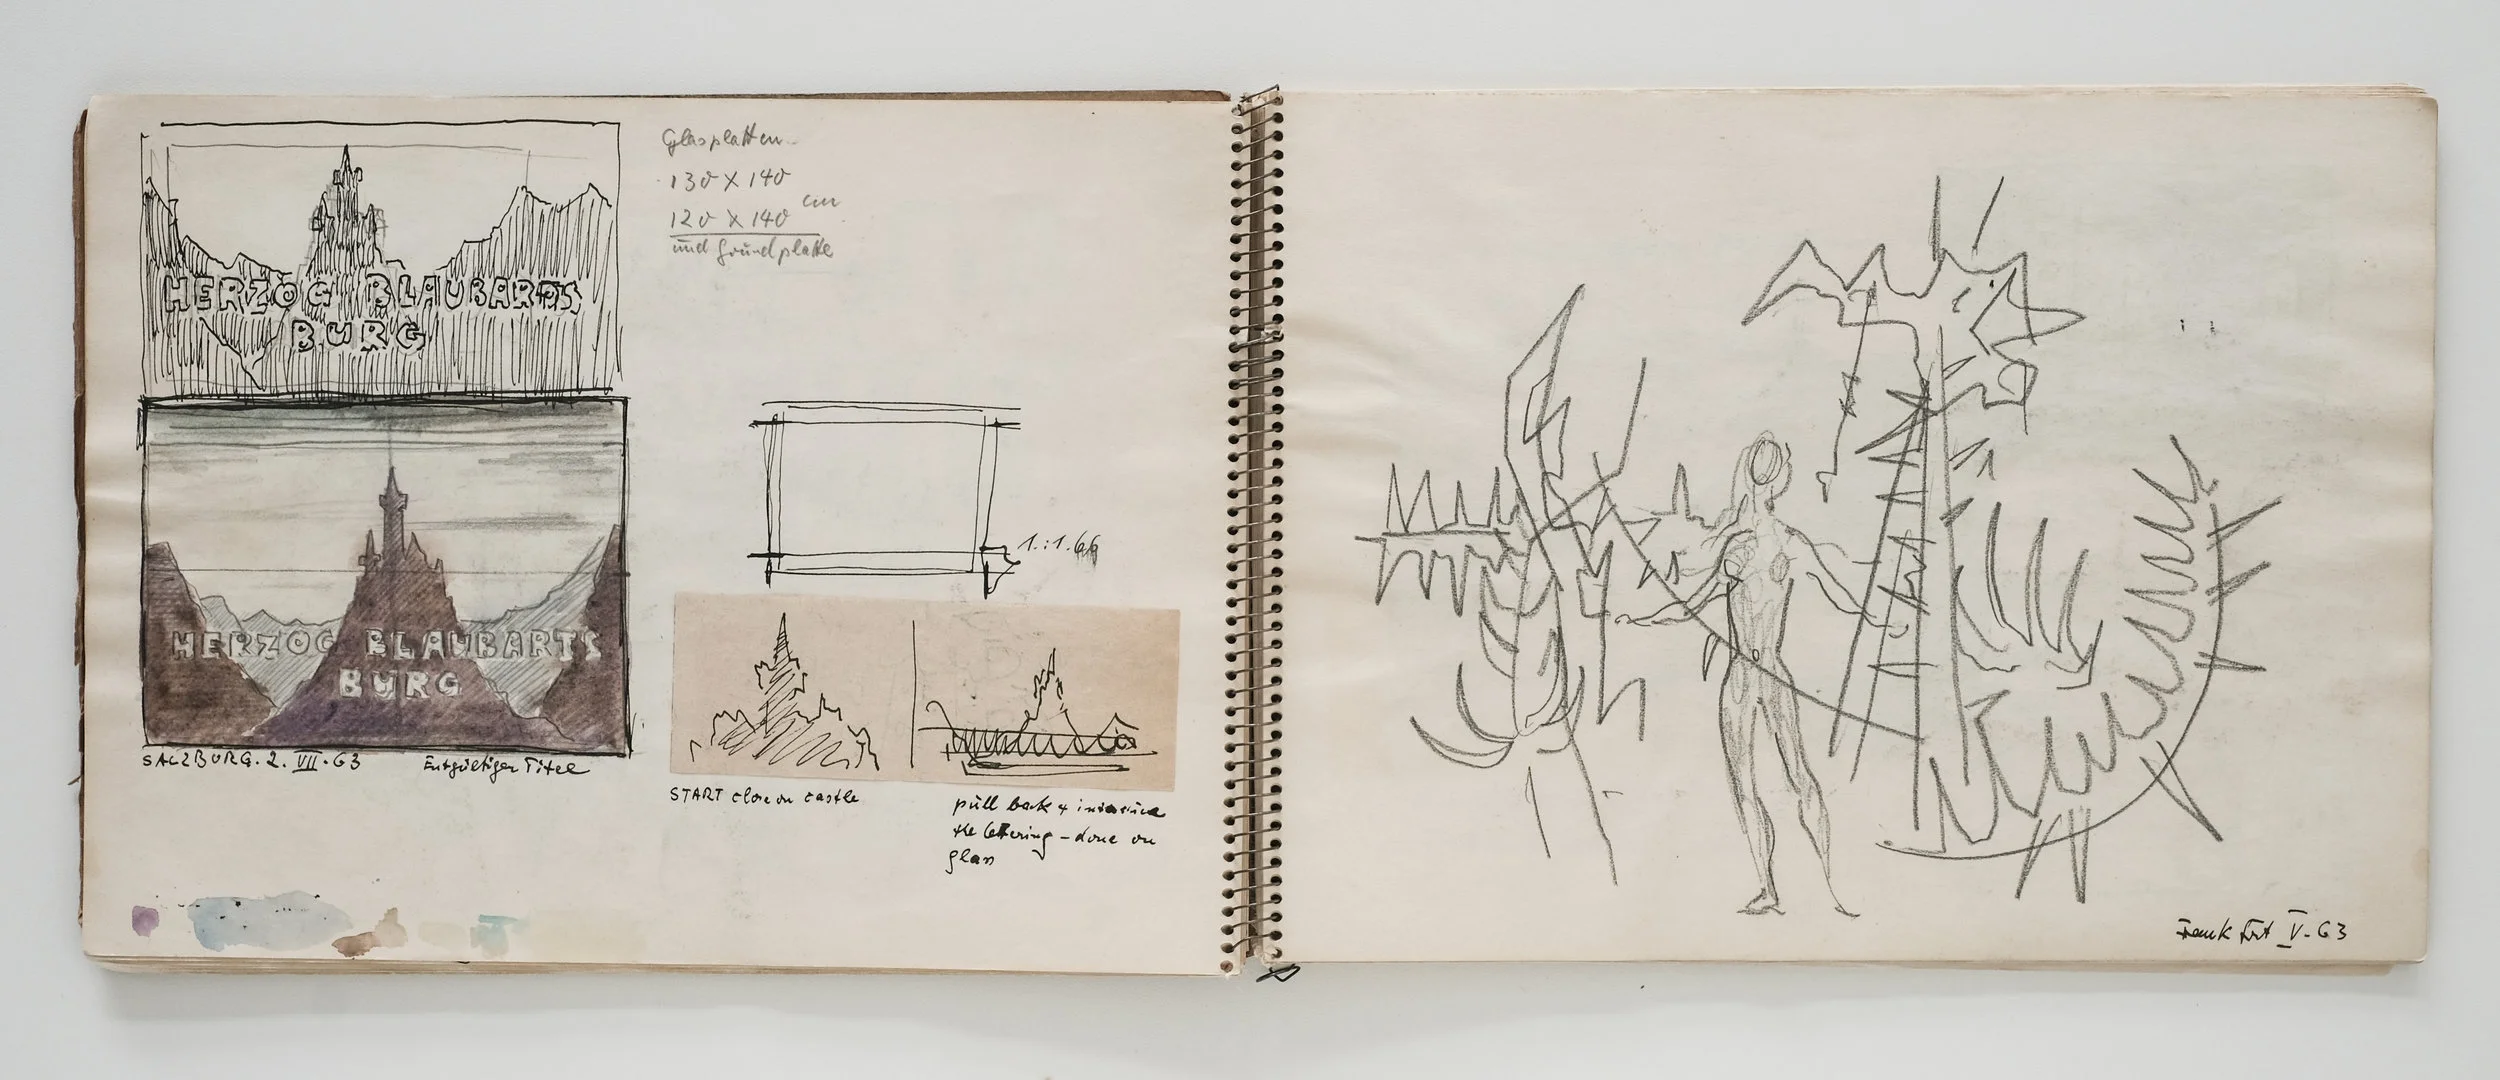 HERZOG BLAUBARTS
BURG
HERZOG BLAUBARTS
BURG
SALZBURG. 2. VII. 63
Entgültiger Titel
Glasplatten
130 X 140
120 X 140 cm
und Grundplatte
1.:1.66
START close on castle
pull back +
the lettering - done on
glass
Frankfurt V. 63